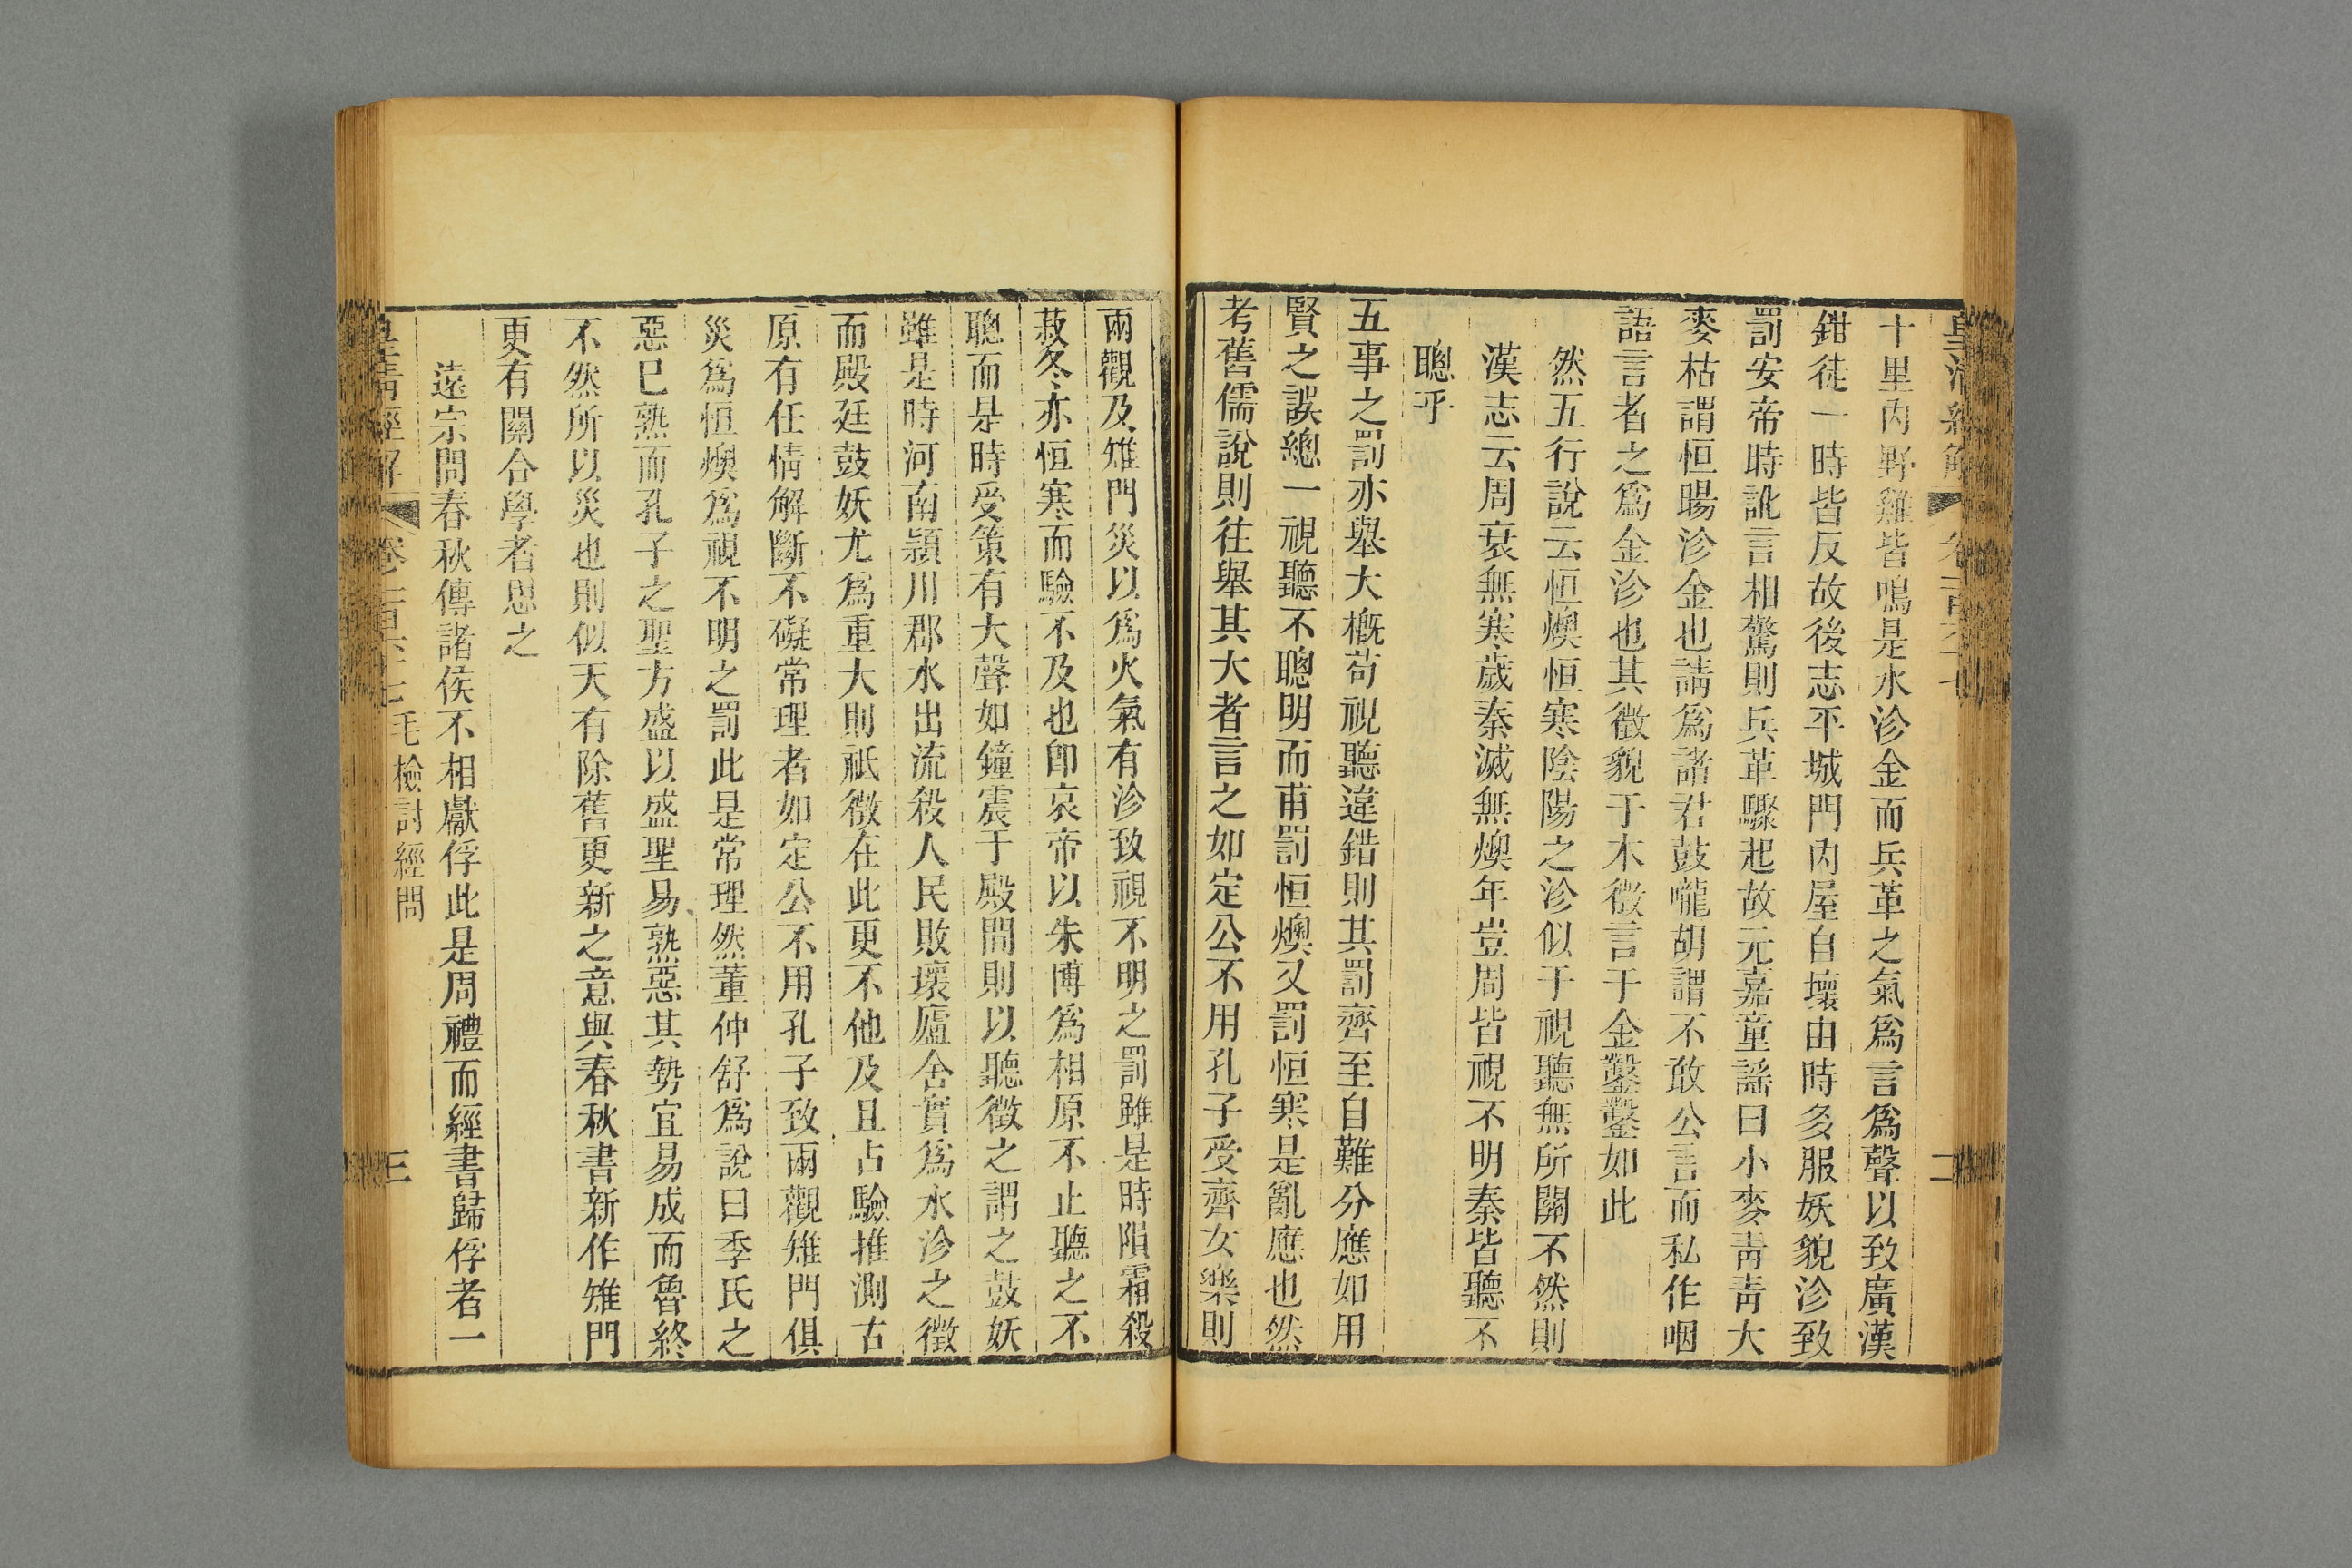 十里內野雞皆鳴是水沴金而兵革之氣爲言爲聲以致廣漢
鉗徒一時皆反故後志平城門內屋自壞由時多服妖貌沴致
罰安帝時訛言相驚則兵革驟起故元嘉童謠曰小麥靑靑大
麥枯謂恒暘沴金也請爲諸君鼓嚨胡謂不敢公言而私作咽
語言者之爲金沴也其徵貌于木徵言于金鑿鑿如此
然五行說云恒燠恒寒陰陽之沴似于視聽無所關不然則
漢志云周衰無寒歲秦滅無燠年豈周皆視不明秦皆聽不
聰乎
五事之罰亦舉大槪苟視聽違錯則其罰齊至自難分應如用
賢之誤總一視聽不聰明而甫罰恒燠又罰恒寒是亂應也然
考舊儒說則往舉其大者言之如定公不用孔子受齊女樂則
兩觀及雉門災以爲火氣有沴致視不明之罰雖是時隕霜殺
菽冬亦恒寒而驗不及也卽哀帝以朱博爲相原不止聽之不
聰而是時受策有大聲如鐘震于殿間則以聽徵之謂之鼓妖
雖是時河南潁川郡水出流殺人民敗壞廬舍實爲水沴之徵
而殿廷鼓妖尤爲重大則祇徵在此更不他及且占驗推測古
原有任情解斷不礙常理者如定公不用孔子致兩觀雉門俱
災爲恒燠爲視不明之罰此是常理然董仲舒爲說曰季氏之
惡已熟而孔子之聖方盛以盛聖易熟惡其勢宜易成而魯終
不然所以災也則似天有除舊更新之意與春秋書新作雉門
更有關合學者思之
遠宗問春秋傳諸侯不相獻俘此是周禮而經書歸俘者一
皇淸經解
毛檢討經問
三
二